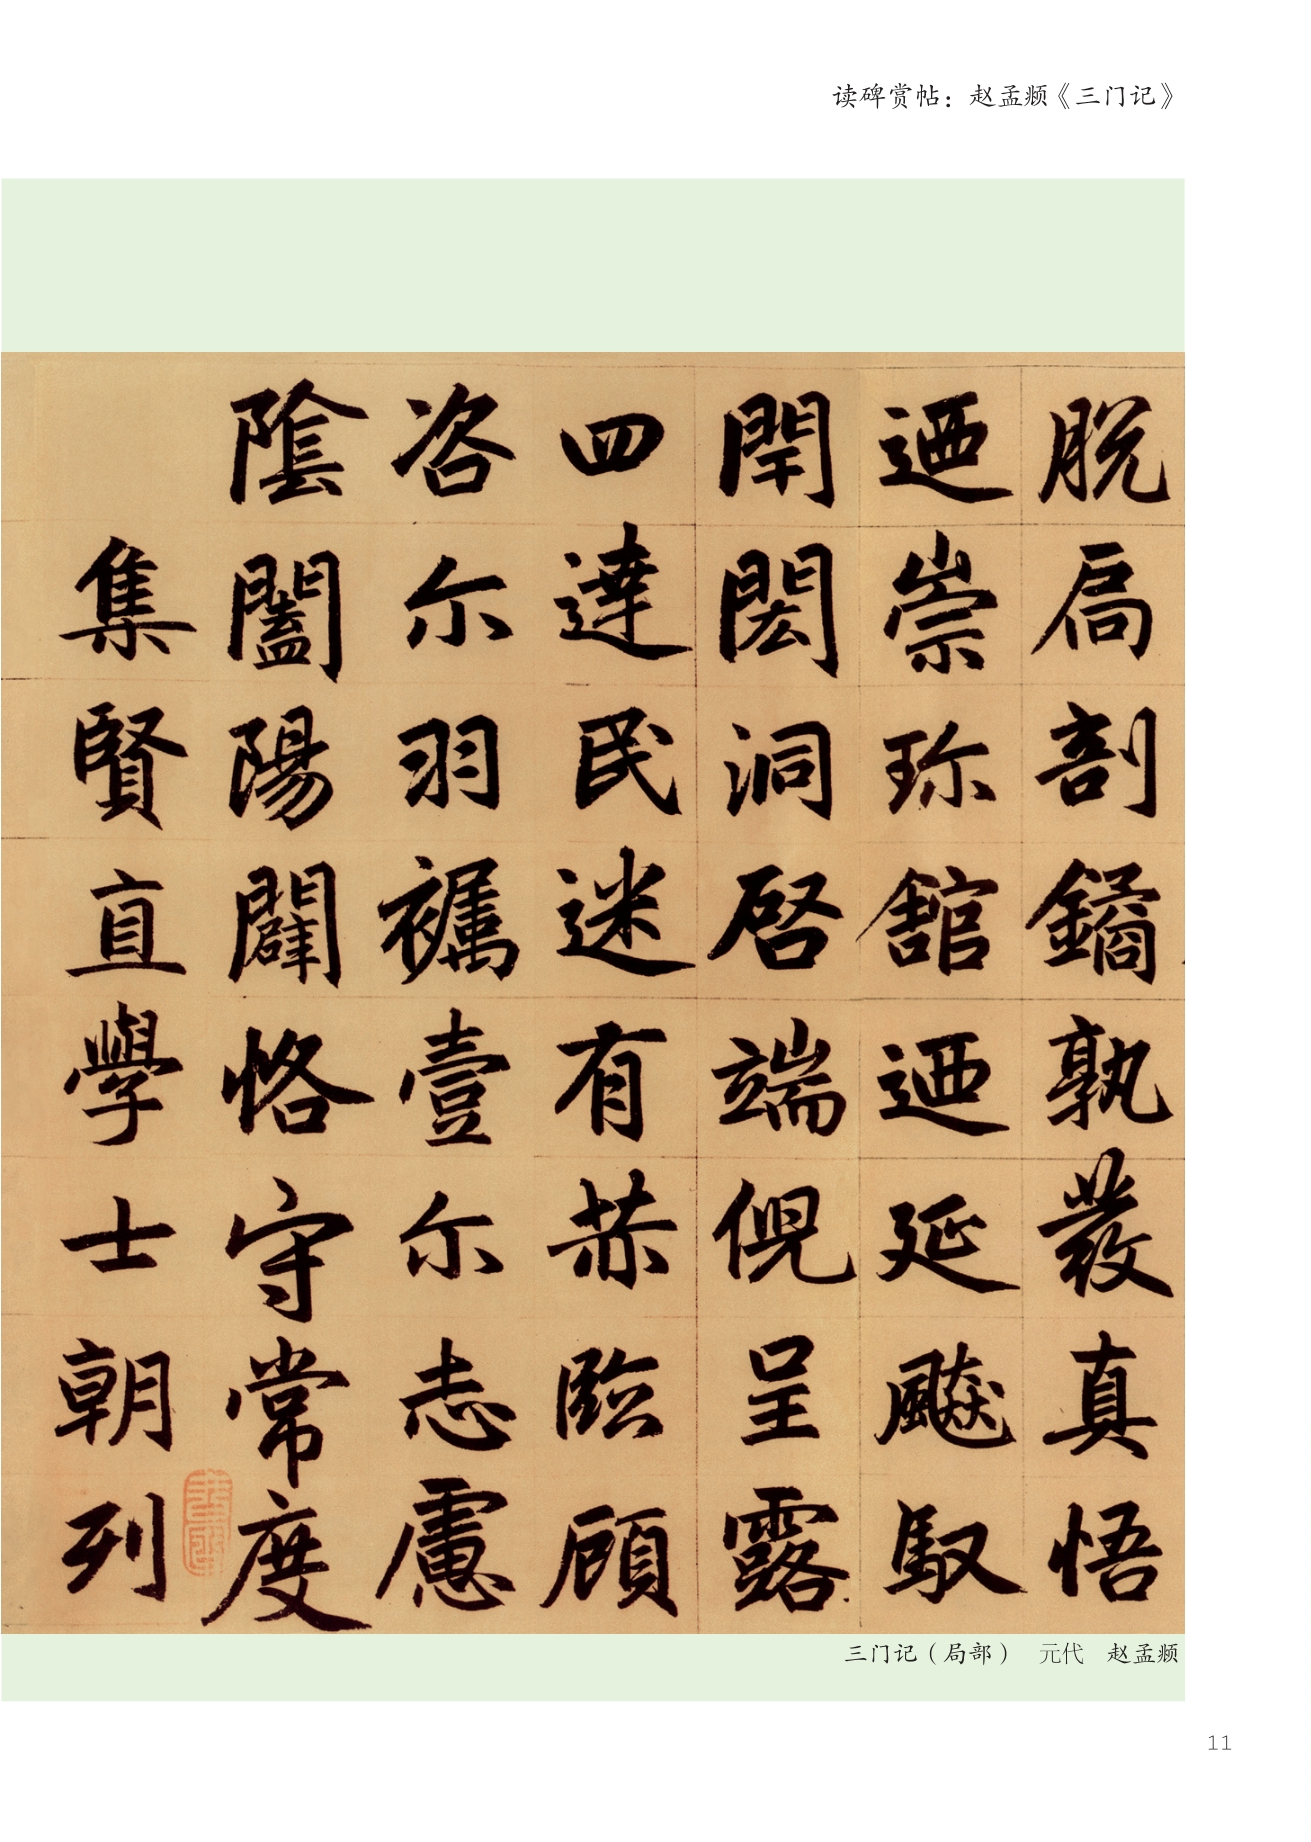 读碑赏帖：赵孟頫《三门记》
脱扃剖鐍孰發真悟
迺崇珎舘迺延飇馭
閈閎洞啓端倪呈露
四達民迷有赫臨顧
咨尒羽襹壹尒志慮
陰闔陽闢恪守常度
集賢直學士朝列
三门记（局部） 元代 赵孟頫
11